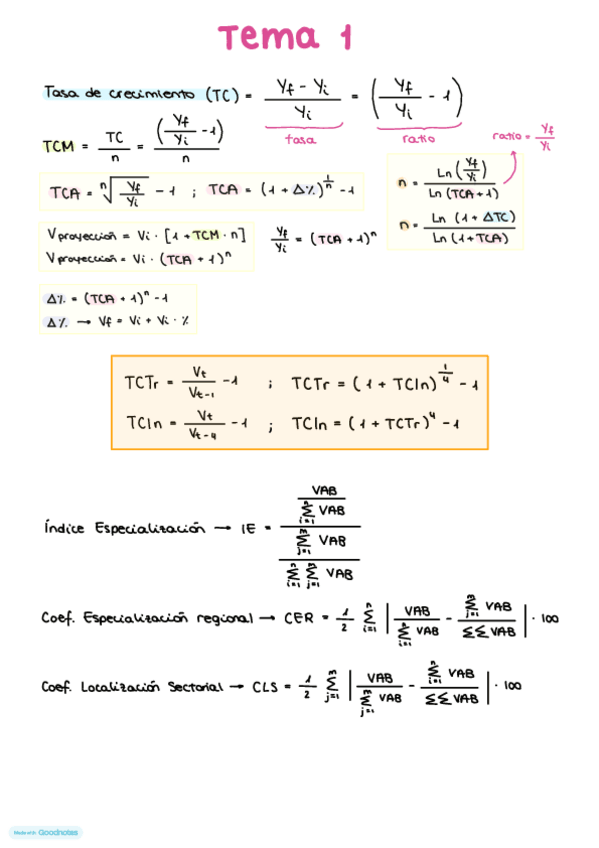 Tema 1
Tasa de crecimiento (TC) = (Yf - Yi) / Yi = (Yf/Yi - 1)
tasa ratio
ratio = Yf/Yi
TCM = TC/n = (Yf/Yi - 1)/n
n = Ln (Yf/Yi) / Ln (TCA + 1)
TCA = ⁿ√(Yf/Yi) - 1 ; TCA = (1 + Δ%)^(1/n) - 1
n = Ln (1 + ΔTC) / Ln (1 + TCA)
Vproyección = Vi · [1 + TCM · n]
Vproyección = Vi · (TCA + 1)^n
Yf/Yi = (TCA + 1)^n
Δ% = (TCA + 1)^n - 1
Δ% → Vf = Vi + Vi · %
TCTr = Vt/Vt-1 - 1 ; TCTr = (1 + TCIn)^(1/4) - 1
TCIn = Vt/Vt-4 - 1 ; TCIn = (1 + TCTr)^4 - 1
Índice Especialización → IE = (VAB / Σ(i=1→n) VAB) / (Σ(j=1→m) VAB / Σ(i=1→n) Σ(j=1→m) VAB)
Coef. Especialización regional → CER = 1/2 Σ(i=1→n) | VAB / Σ(i=1→n) VAB - Σ(j=1→m) VAB / ΣΣ VAB | · 100
Coef. Localización Sectorial → CLS = 1/2 Σ(j=1→m) | VAB / Σ(j=1→m) VAB - Σ(i=1→n) VAB / ΣΣ VAB | · 100
Made with Goodnotes